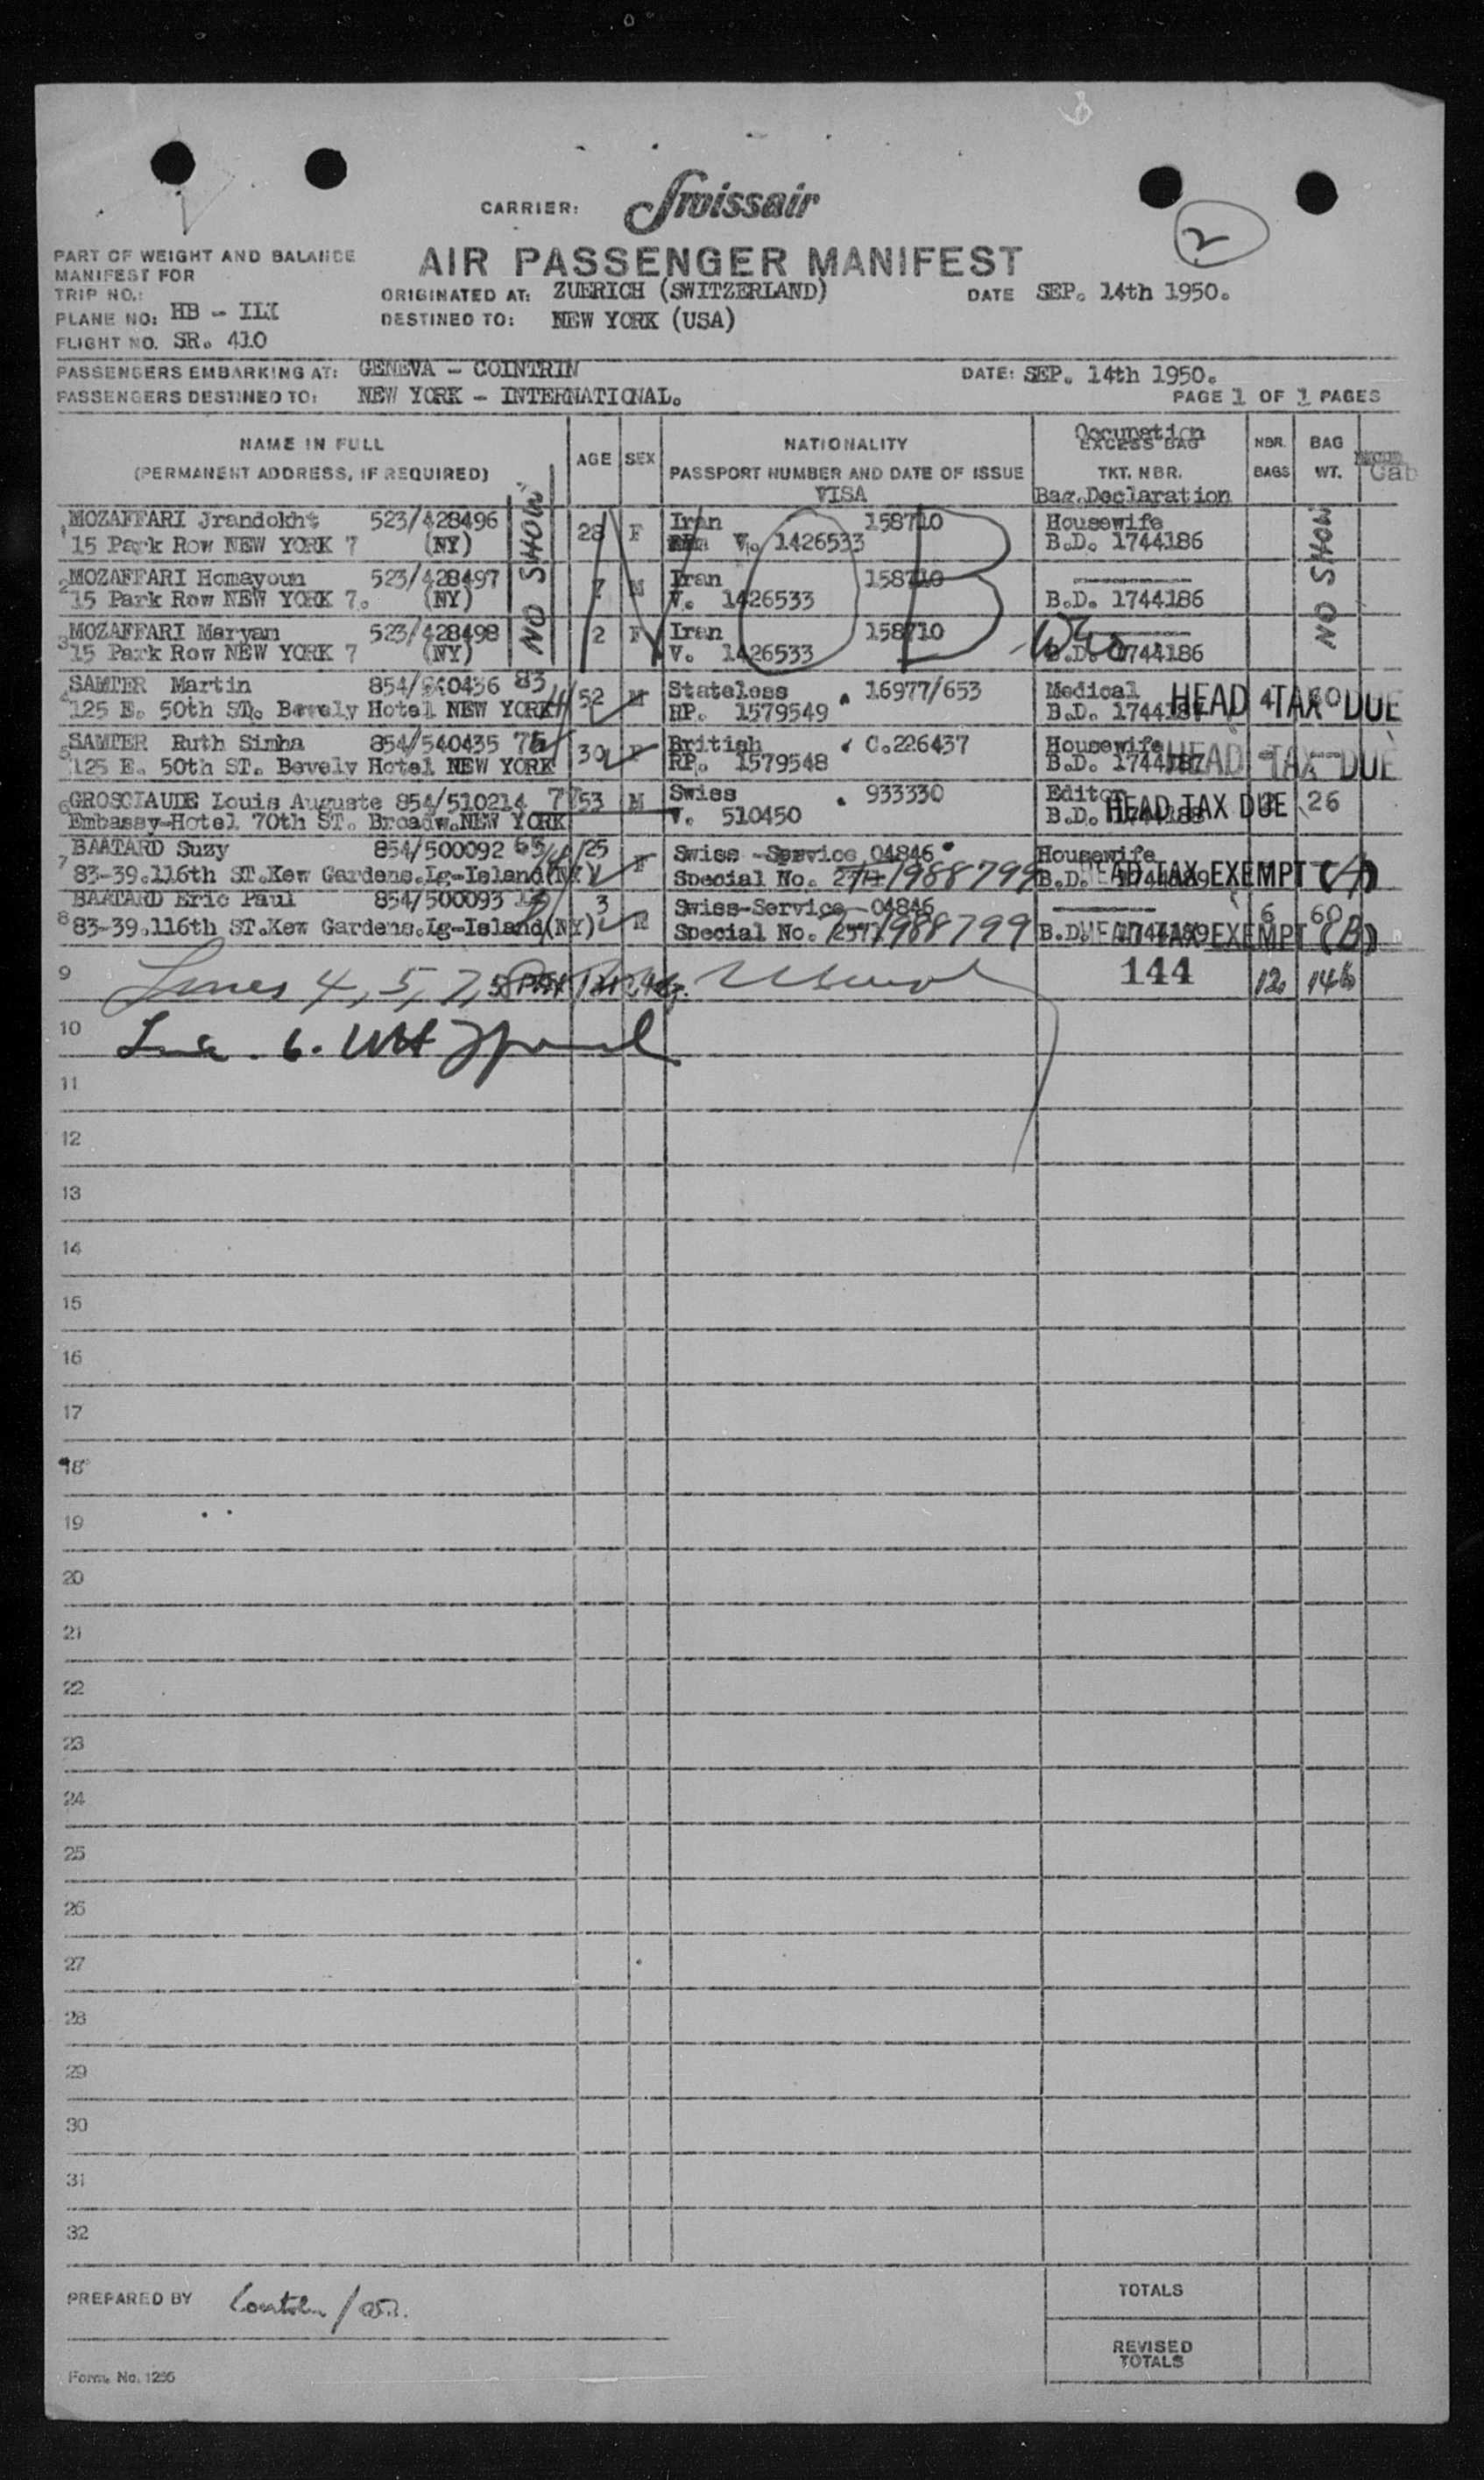 CARRIER: Swissair
2
PART OF WEIGHT AND BALANCE
MANIFEST FOR
AIR PASSENGER MANIFEST
TRIP NO.:
ORIGINATED AT: ZUERICH (SWITZERLAND) DATE SEP. 14th 1950.
PLANE NO: HB - ILI
DESTINED TO: NEW YORK (USA)
FLIGHT NO. SR. 410
PASSENGERS EMBARKING AT: GENEVA - COINTRIN DATE: SEP. 14th 1950.
PASSENGERS DESTINED TO: NEW YORK - INTERNATIONAL. PAGE 1 OF 1 PAGES
NAME IN FULL AGE SEX NATIONALITY Occupation EXCESS BAG NBR. BAG
(PERMANENT ADDRESS, IF REQUIRED) PASSPORT NUMBER AND DATE OF ISSUE TKT. NBR. BAGS WT.
VISA Bag.Declaration
1 MOZAFFARI Jrandokht 523/428496 28 F Iran 158710 Housewife
15 Park Row NEW YORK 7 (NY) V. 1426533 B.D. 1744186
2 MOZAFFARI Homayoun 523/428497 7 M Iran 158710
15 Park Row NEW YORK 7. (NY) V. 1426533 B.D. 1744186
3 MOZAFFARI Maryan 523/428498 2 F Iran 158710
15 Park Row NEW YORK 7 (NY) V. 1426533 B.D. 1744186
NO SHOW
NO SHOW
NOB
4 SAMTER Martin 854/540436 83 52 M Stateless 16977/653 Medical HEAD TAX DUE
125 E. 50th ST. Bevely Hotel NEW YORK RP. 1579549 B.D. 1744187
5 SAMTER Ruth Simha 854/540435 30 F British C.226437 Housewife HEAD TAX DUE
125 E. 50th ST. Bevely Hotel NEW YORK RP. 1579548 B.D. 1744187
6 GROSCIAUDE Louis Auguste 854/510214 53 M Swiss 933330 Editor HEAD TAX DUE 2 26
Embassy-Hotel 70th ST. Broadw.NEW YORK V. 510450 B.D. 1744188
7 BAATARD Suzy 854/500092 65 25 F Swiss -Service 04846 Housewife
83-39.116th ST.Kew Gardens.Lg-Island(NY) Special No. 1988799 B.D. 1744189 HEAD TAX EXEMPT (A)
8 BAATARD Eric Paul 854/500093 3 M Swiss-Service 04846 6 60
83-39.116th ST.Kew Gardens.Lg-Island(NY) Special No. 1988799 B.D. 1744189 HEAD TAX EXEMPT (B)
9 Lines 4, 5, 7, 8 144 12 146
10 Line . 6.
11
12
13
14
15
16
17
18
19
20
21
22
23
24
25
26
27
28
29
30
31
32
PREPARED BY
TOTALS
REVISED
TOTALS
Form. No. 1256